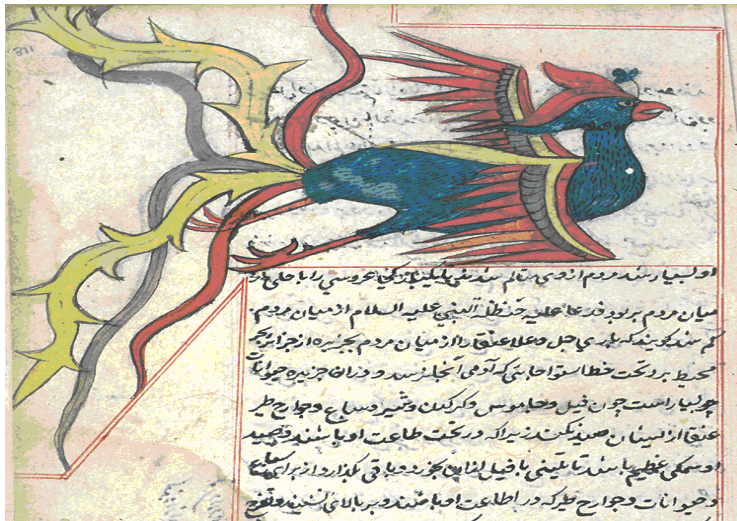 او بسیار شد مردم از وی متالم شدند عروسی را با حلی از
میان مردم بربود فدعا علیه حنظلة النبی علیه السلام از میان مردم
کم شد کویند که باری جل و علا عنقا را از میان مردم بجزیره از جزایر بحر
محیط برد تحت خط استوا جایی که آدمی آنجا نرسد و در آن جزیره حیوانات
چو بسیار است چون فیل و جاموس و کرکدن و شیر و سباع و جوارح طیر
عنقا از ایشان صید نکند زیرا که در تحت طاعت او باشند و صید
او سمکی عظیم باشد یا تنینی یا فیل از آن بخورد و باقی بگذارد از برای سباع
و حیوانات و جوارح طیر که در اطاعت او باشند و بر بالای نشیند و تفرج